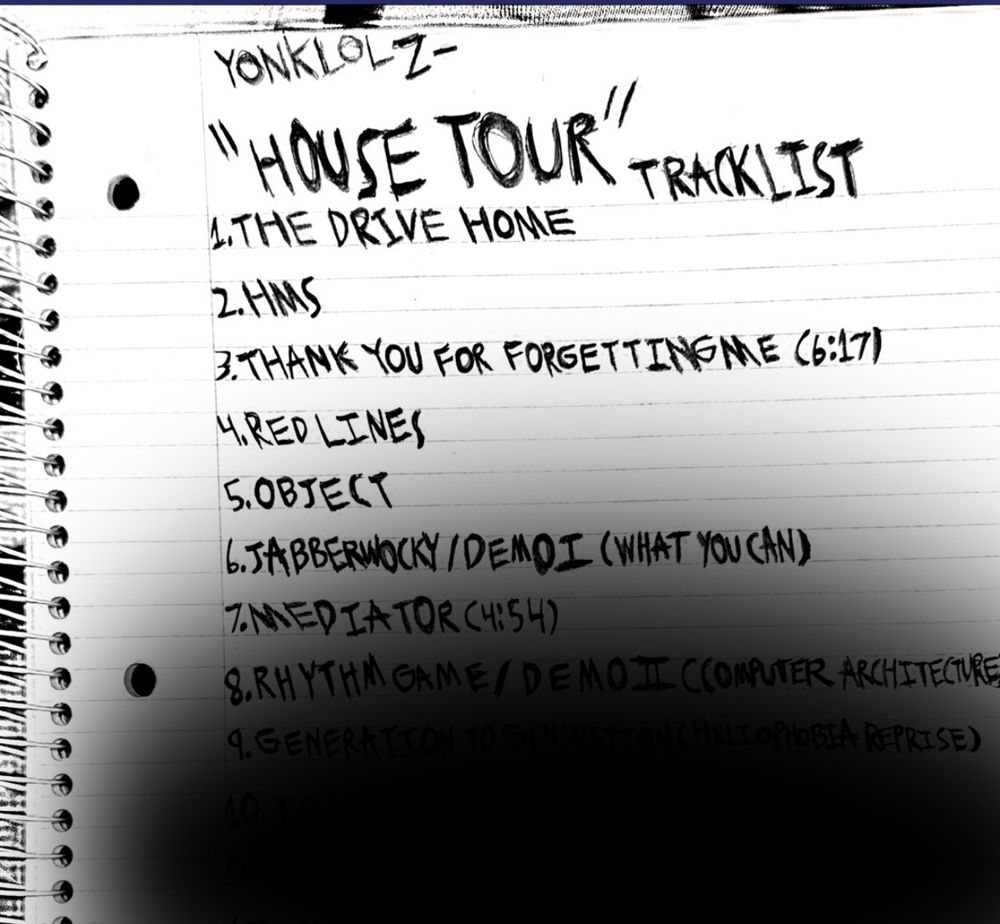 YONKLOLZ-
"HOUSE TOUR" TRACKLIST
1. THE DRIVE HOME
2. HMS
3. THANK YOU FOR FORGETTING ME (6:17)
4. RED LINES
5. OBJECT
6. JABBERWOCKY / DEMO I (WHAT YOU CAN)
7. MEDIATOR (4:54)
8. RHYTHM GAME / DEMO II (COMPUTER ARCHITECTURE
9. GENERATION TO GENERATION (HELIOPHOBIA REPRISE)
10.